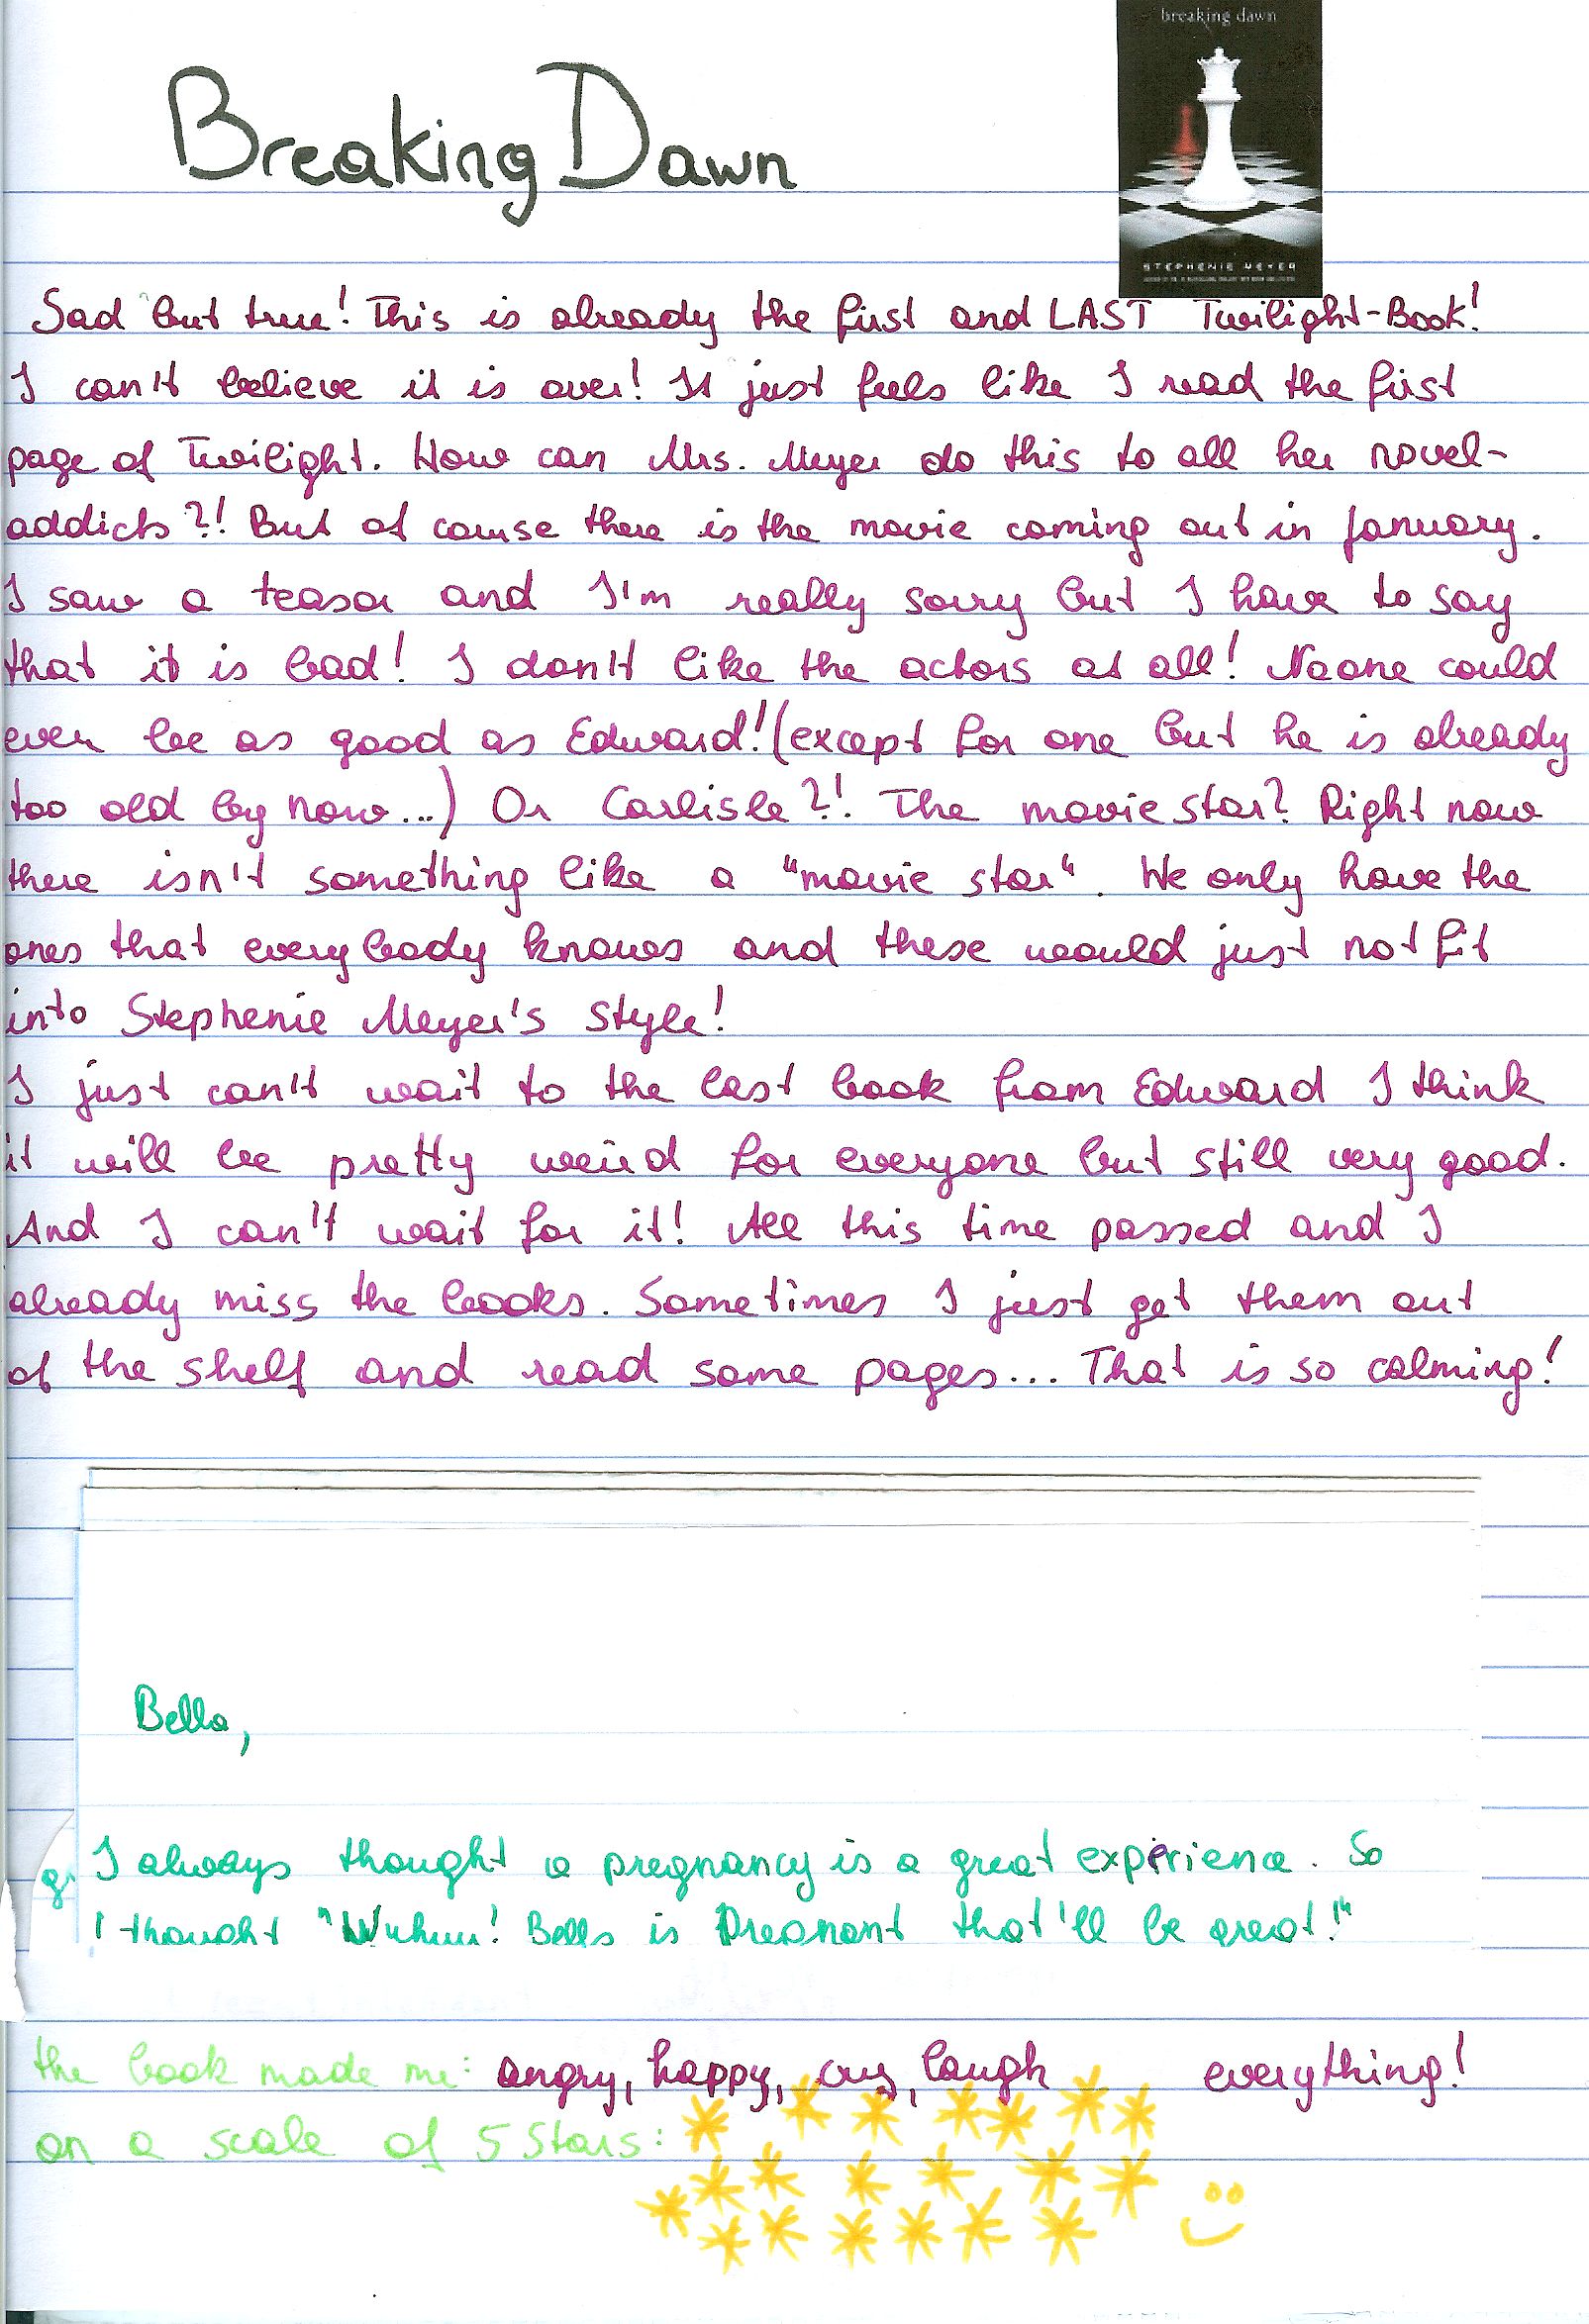 breaking dawn
Breaking Dawn
STEPHENIE MEYER
Sad but true! This is already the first and LAST Twilight-Book!
I can't believe it is over! It just feels like I read the first
page of Twilight. How can Mrs. Meyer do this to all her novel-
addicts?! But of course there is the movie coming out in January.
I saw a teasor and I'm really sorry but I have to say
that it is bad! I don't like the actors at all! Noone could
ever be as good as Edward! (except for one but he is already
too old by now...) Or Carlisle?! The movie star? Right now
there isn't something like a "movie star". We only have the
ones that everybody knows and these would just not fit
into Stephenie Meyer's style!
I just can't wait to the last book from Edward I think
it will be pretty weird for everyone but still very good.
And I can't wait for it! All this time passed and I
already miss the books. Sometimes I just get them out
of the shelf and read some pages... That is so calming!
Bella,
I always thought a pregnancy is a great experience. So
I thought "Wuhuu! Bella is Pregnant that'll be great!"
the book made me: angry, happy, cry, laugh everything!
on a scale of 5 Stars: